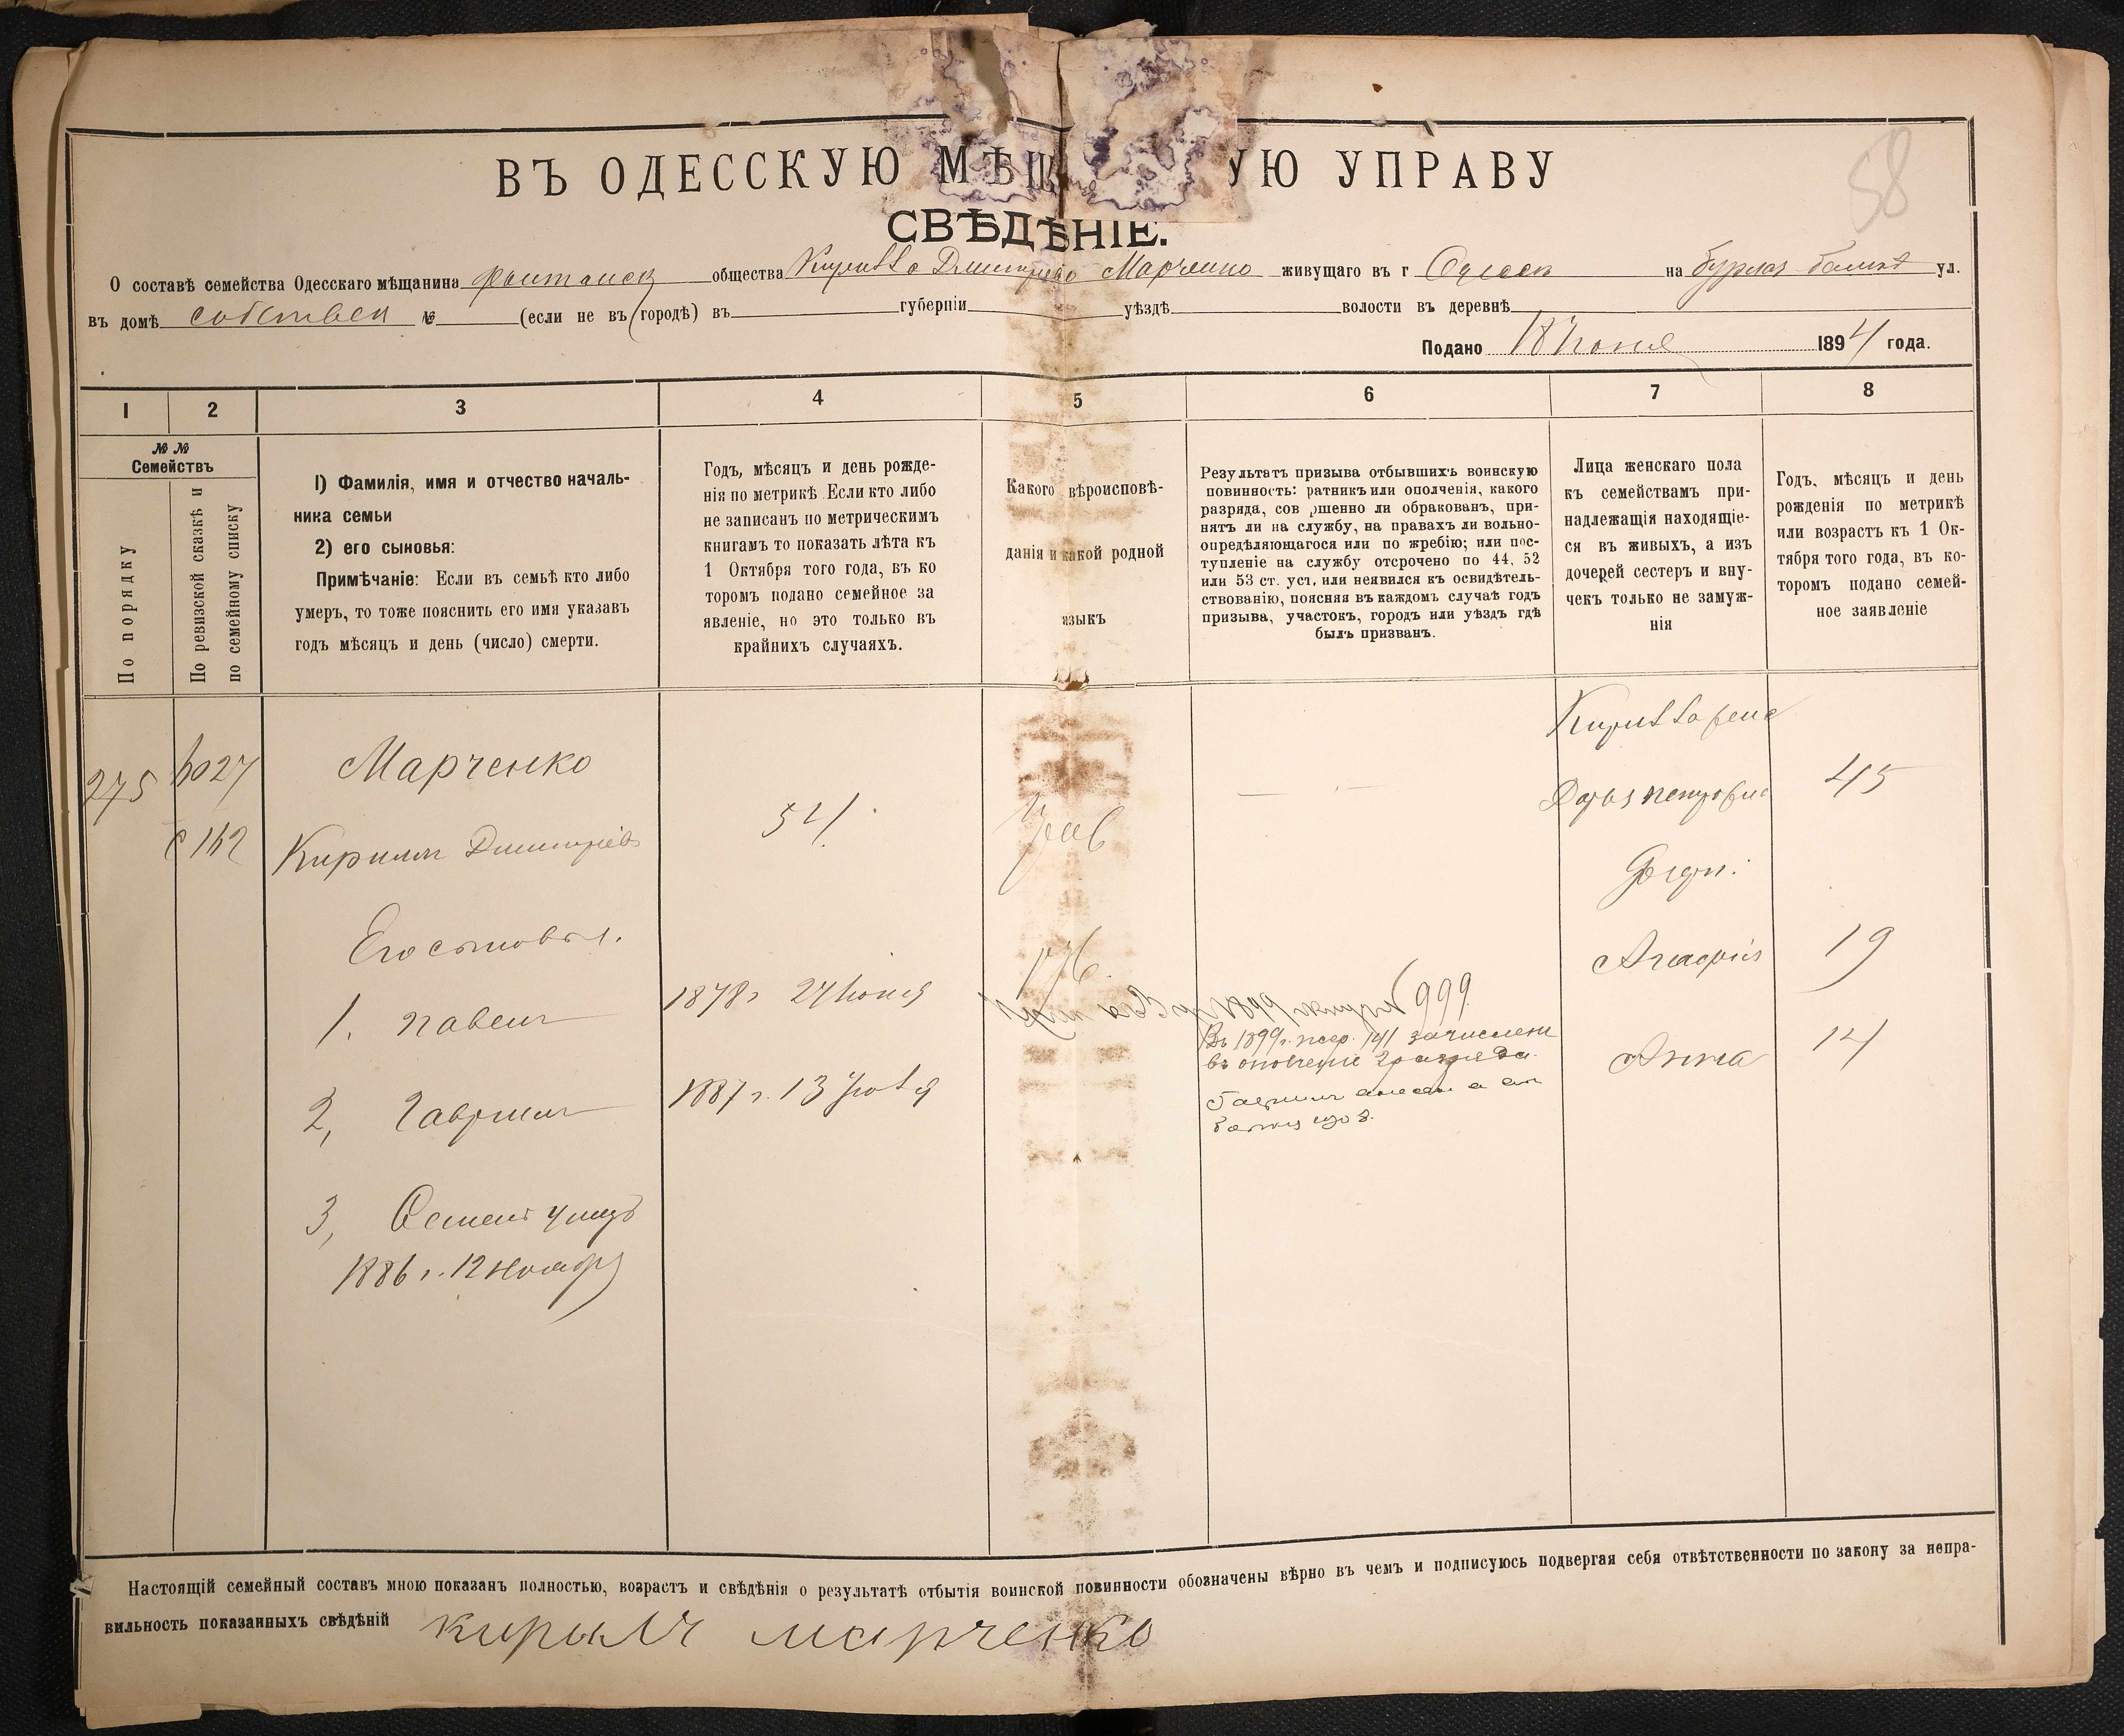 58
ВЪ ОДЕССКУЮ МѢЩ УЮ УПРАВУ
СВѢДѢНІЕ.
О составѣ семейства Одесскаго мѣщанина фонтанск общества Кирилла Дмитріева Марченко живущаго въ г Одессѣ на бурлач балкѣ ул.
въ домѣ собствен № (если не въ городѣ) въ губерніи уѣздѣ волости въ деревнѣ
Подано 18 Іюня 1894 года.
1 2 3 4 5 6 7 8
№ №
Семействъ
По порядку
По ревизской сказкѣ и
по семейному списку
1) Фамилія, имя и отчество началь-
ника семьи
2) его сыновья:
Примѣчаніе: Если въ семьѣ кто либо
умеръ, то тоже пояснить его имя указавъ
годъ мѣсяцъ и день (число) смерти.
Годъ, мѣсяцъ и день рожде-
нія по метрикѣ Если кто либо
не записанъ по метрическимъ
книгамъ то показать лѣта къ
1 Октября того года, въ ко
торомъ подано семейное за
явленіе, но это только въ
крайнихъ случаяхъ.
Какого вѣроисповѣ-
данія и какой родной
языкъ
Результатъ призыва отбывшихъ воинскую
повинность: ратникъ или ополченія, какого
разряда, сов ршенно ли обракованъ, при-
нятъ ли на службу, на правахъ ли вольно-
опредѣляющагося или по жребію; или пос-
тупленіе на службу отсрочено по 44, 52
или 53 ст. уст, или неявился къ освидѣтель-
ствованію, поясняя въ каждомъ случаѣ годъ
призыва, участокъ, городъ или уѣздъ гдѣ
былъ призванъ.
Лица женскаго пола
къ семействамъ при-
надлежащія находящіе-
ся въ живыхъ, а изъ
дочерей сестеръ и вну-
чекъ только не замуж-
нія
Годъ, мѣсяцъ и день
рожденія по метрикѣ
или возрастъ къ 1 Ок-
тября того года, въ ко-
торомъ подано семей-
ное заявленіе
275
Марченко
Кириллъ Дмитріевъ
54
Кирилла жена
Дарья Петровна 45
Его сыновья.
Дочери:
1. Павелъ 1878 г 24 Іюня
Агафія 19
Въ 1899 г. жер. 141 зачисленъ
въ ополченіе 2 разряда.
Анна 14
2, Гавріилъ 1887 г. 13
3, Семенъ умеръ
1886 г. 12 ноября
Настоящій семейный составъ мною показанъ полностью, возрастъ и свѣдѣнія о результатѣ отбытія воинской повинности обозначены вѣрно въ чемъ и подписуюсь подвергая себя отвѣтственности по закону за непра-
вильность показанныхъ свѣдѣній кирылъ марченко